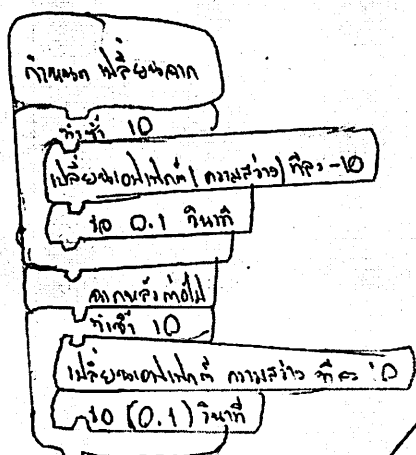 กำหนด เปลี่ยนฉาก
ทำซ้ำ 10
เปลี่ยนเอฟเฟกต์ ความสว่าง ทีละ -10
รอ 0.1 วินาที
ฉากหลังต่อไป
ทำซ้ำ 10
เปลี่ยนเอฟเฟกต์ ความสว่าง ทีละ 10
รอ (0.1) วินาที